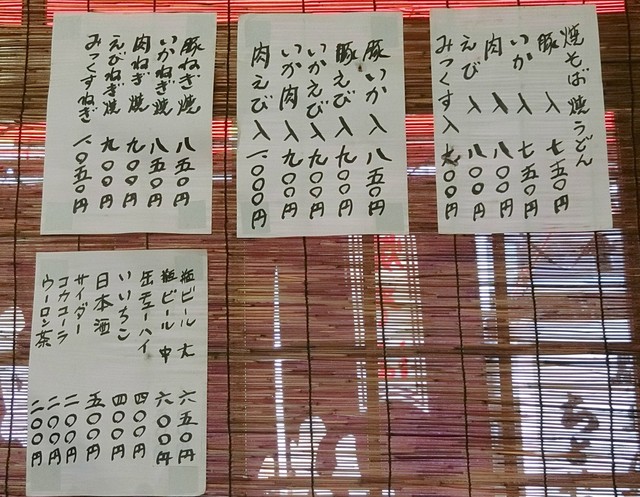 焼そば 焼うどん
豚 入 七五〇円
いか 入 七五〇円
肉 入 八〇〇円
えび 入 八〇〇円
みっくす入 九〇〇円
豚いか入 八五〇円
豚えび入 九〇〇円
いかえび入 九〇〇円
いか肉入 九〇〇円
肉えび入 一、〇〇〇円
豚ねぎ焼 八五〇円
いかねぎ焼 八五〇円
肉ねぎ焼 九〇〇円
えびねぎ焼 九〇〇円
みっくすねぎ 一、〇五〇円
瓶ビール 大 六五〇円
瓶ビール 中 六〇〇円
缶チューハイ 四〇〇円
いいちこ 四〇〇円
日本酒 五〇〇円
サイダー 二〇〇円
コカコーラ 二〇〇円
ウーロン茶 二〇〇円